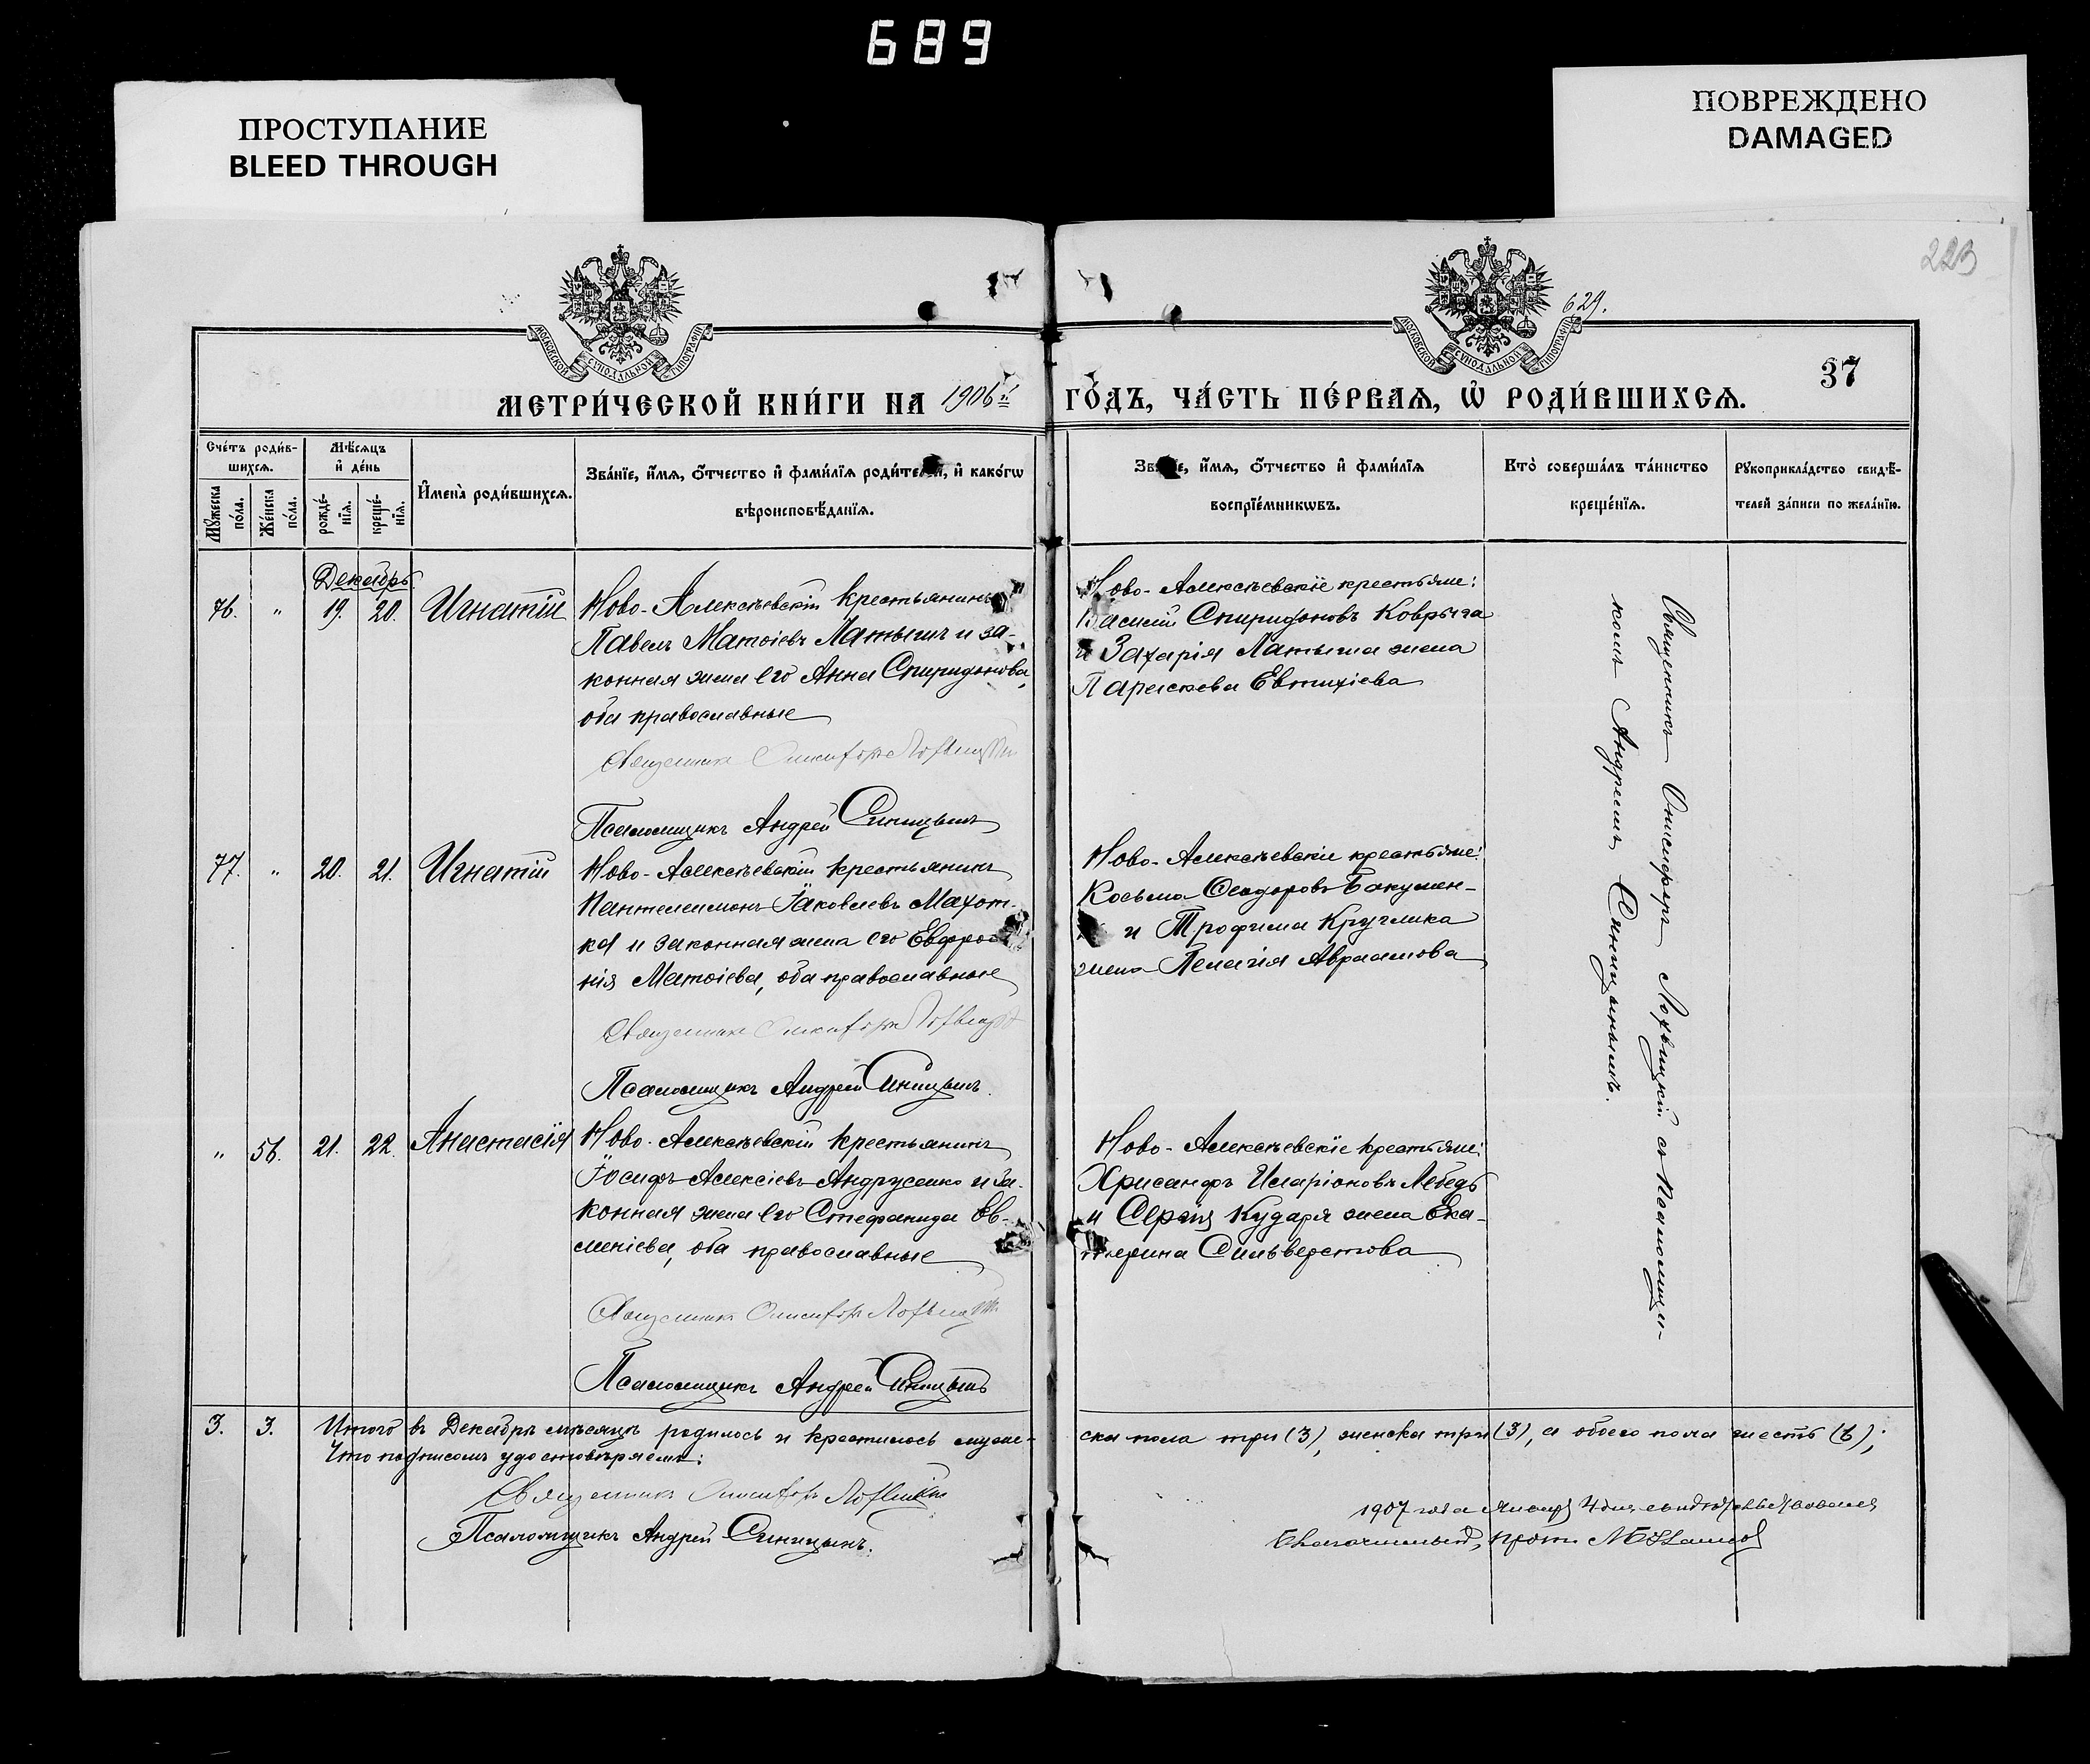 689
ПРОСТУПАНИЕ
BLEED THROUGH
ПОВРЕЖДЕНО
DAMAGED
223
629.
37
МОСКОВСКОЙ СУНОДАЛЬНОЙ ТИПОГРАФІИ
МОСКОВСКОЙ СУНОДАЛЬНОЙ ТИПОГРАФІИ
МЕТРИ́ЧЕСКОЙ КНИ́ГИ НА 1906й ГО́ДЪ, ЧА́СТЬ ПЕ́РВАѦ, Ѡ҆ РОДИ́ВШИХСѦ.
Сче́тъ роди́в-
шихсѧ.
Мѣ́сѧцъ
и҆ де́нь
Мꙋ́жеска по́ла.
Же́нска по́ла.
рожде́-
нїѧ.
креще́-
нїѧ.
И҆мена̀ роди́вшихсѧ.
Зва́нїе, и҆́мѧ, ѻ҆́тчество и҆ фами́лїѧ роди́телей, и҆ како́гѡ
вѣроисповѣ́данїѧ.
Зва́нїе, и҆́мѧ, ѻ҆́тчество и҆ фами́лїѧ
воспрїе́мникѡвъ.
Кто̀ соверша́лъ та́инство
креще́нїѧ.
Рꙋкоприкла́дство свидѣ́-
телей за́писи по жела́нїю.
Декабрь
76. " 19. 20. Игнатій
Ново-Алексѣевскій крестьянинъ
Павелъ Матѳіевъ Латышъ и за-
конная жена его Анна Спиридонова,
оба православные
Священникъ Онисифоръ Лохвицкій
Псаломщикъ Андрей Синицынъ
Ново-Алексѣевскіе крестьяне:
Василій Спиридоновъ Коврыга
и Захарія Латыша жена
Параскева Евтихіева
77. " 20. 21. Игнатій
Ново-Алексѣевскій крестьянинъ
Пантелеимонъ Іаковлевъ Махот-
ка и законная жена его Евфроси-
нія Матѳіева, оба православные
Священникъ Онисифоръ Лохвицкій
Псаломщикъ Андрей Синицынъ.
Ново-Алексѣевскіе крестьяне:
Косьма Ѳеодоровъ Бакумен-
и Трофима Круглика
жена Пелагія Авраамова
" 56. 21. 22. Анастасія
Ново-Алексѣевскій крестьянинъ
Іосифъ Алексіевъ Андрусенко и за-
конная жена его Стефанида Ев-
меніева, оба православные
Священникъ Онисифоръ Лохвицкій
Псаломщикъ Андрей Синицынъ
Ново-Алексѣевскіе крестьяне:
Хрисанфъ Иларіоновъ Лебедь
и Сергія Кударя жена Ека-
терина Сильверстова
Священникъ Онисифоръ Лохвицкій съ Псаломщи-
комъ Андреемъ Синицынымъ.
3. 3. Итого въ Декабрѣ мѣсяцѣ родилось и крестилось муже-
ска пола три (3), женска три (3), а обоего пола шесть (6);
Что подписомъ удостовѣряемъ:
Священникъ Онисифоръ Лохвицкій
Псаломщикъ Андрей Синицынъ.
1907 года Января 4 дня свидѣтельствовалъ
Благочинный, прот.